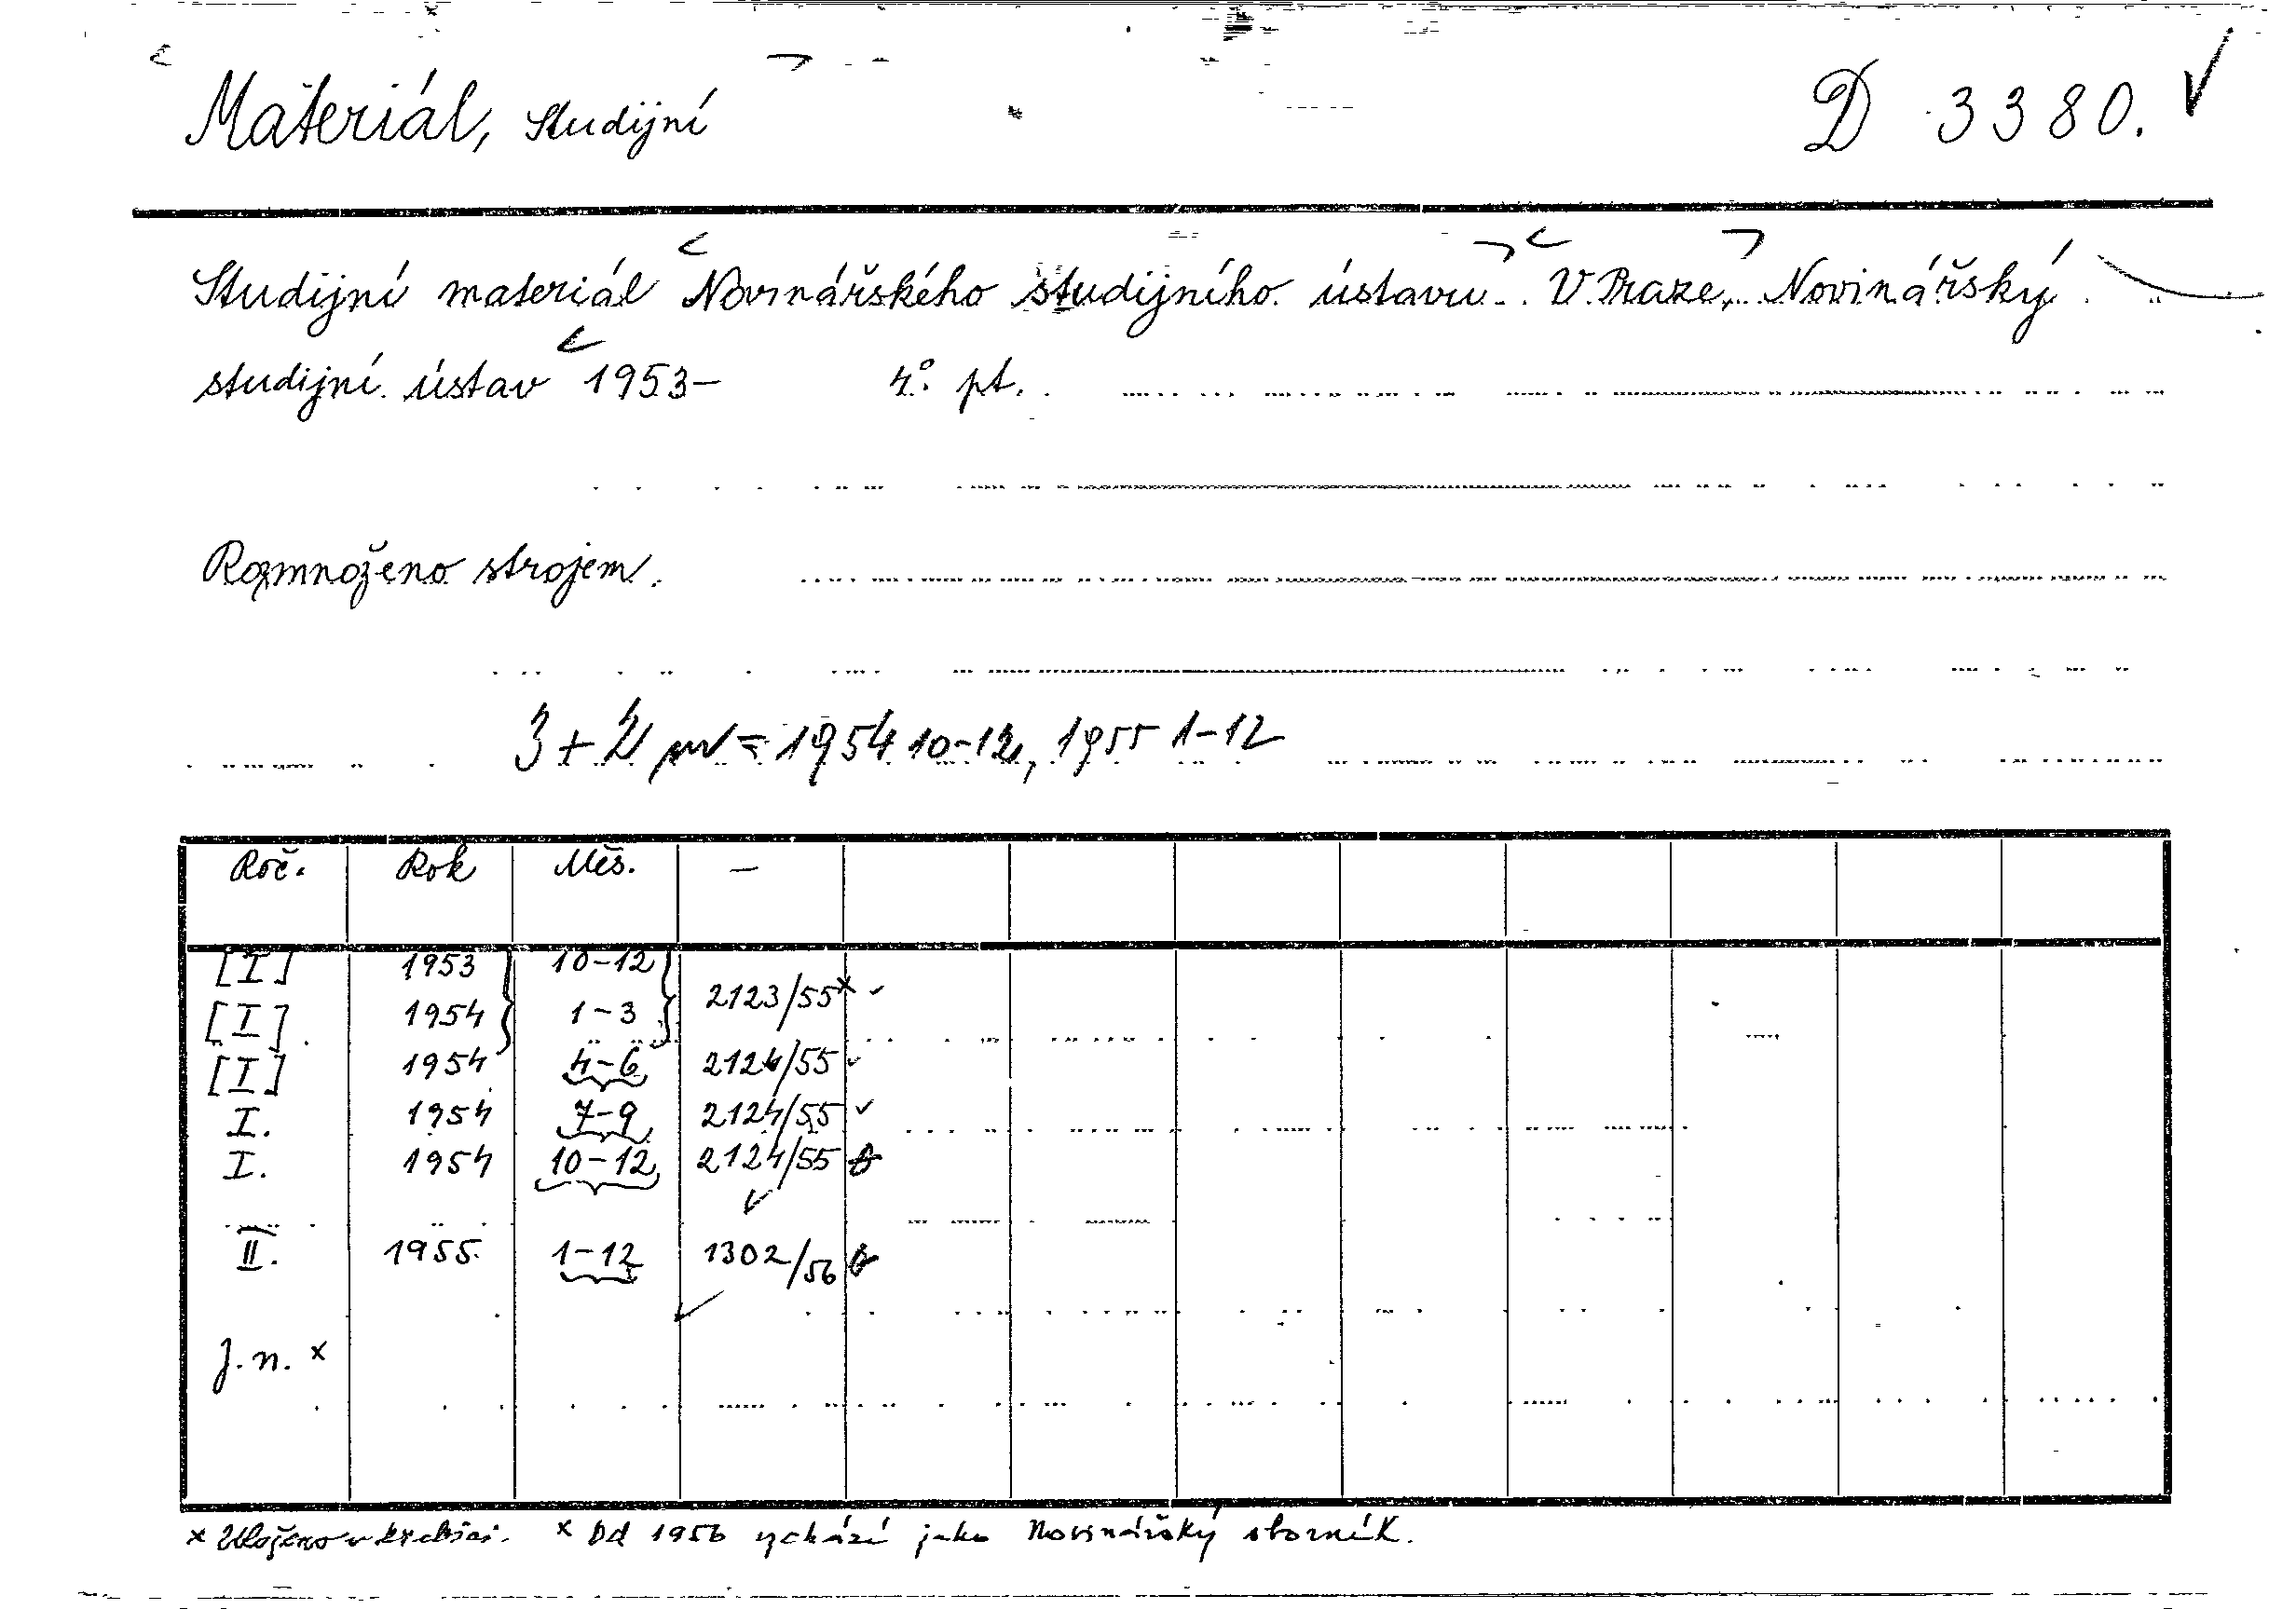 Materiál, Studijní D 3380.
Studijní materiál Novinářského studijního ústavu. V Praze, Novinářský
studijní ústav 1953– 4° pt.
Rozmnoženo strojem.
3 + = 1954 10-12, 1955 1-12
Roč. Rok Měs. –
[I] 1953 10-12
2123/55 x
[I] 1954 1-3
[I] 1954 4-6 2124/55
I. 1954 7-9 2124/55
I. 1954 10-12 2124/55
II. 1955 1-12 1302/56
J. n. x
x Uloženo v krabici. x Od 1956 vychází jako Novinářský sborník.